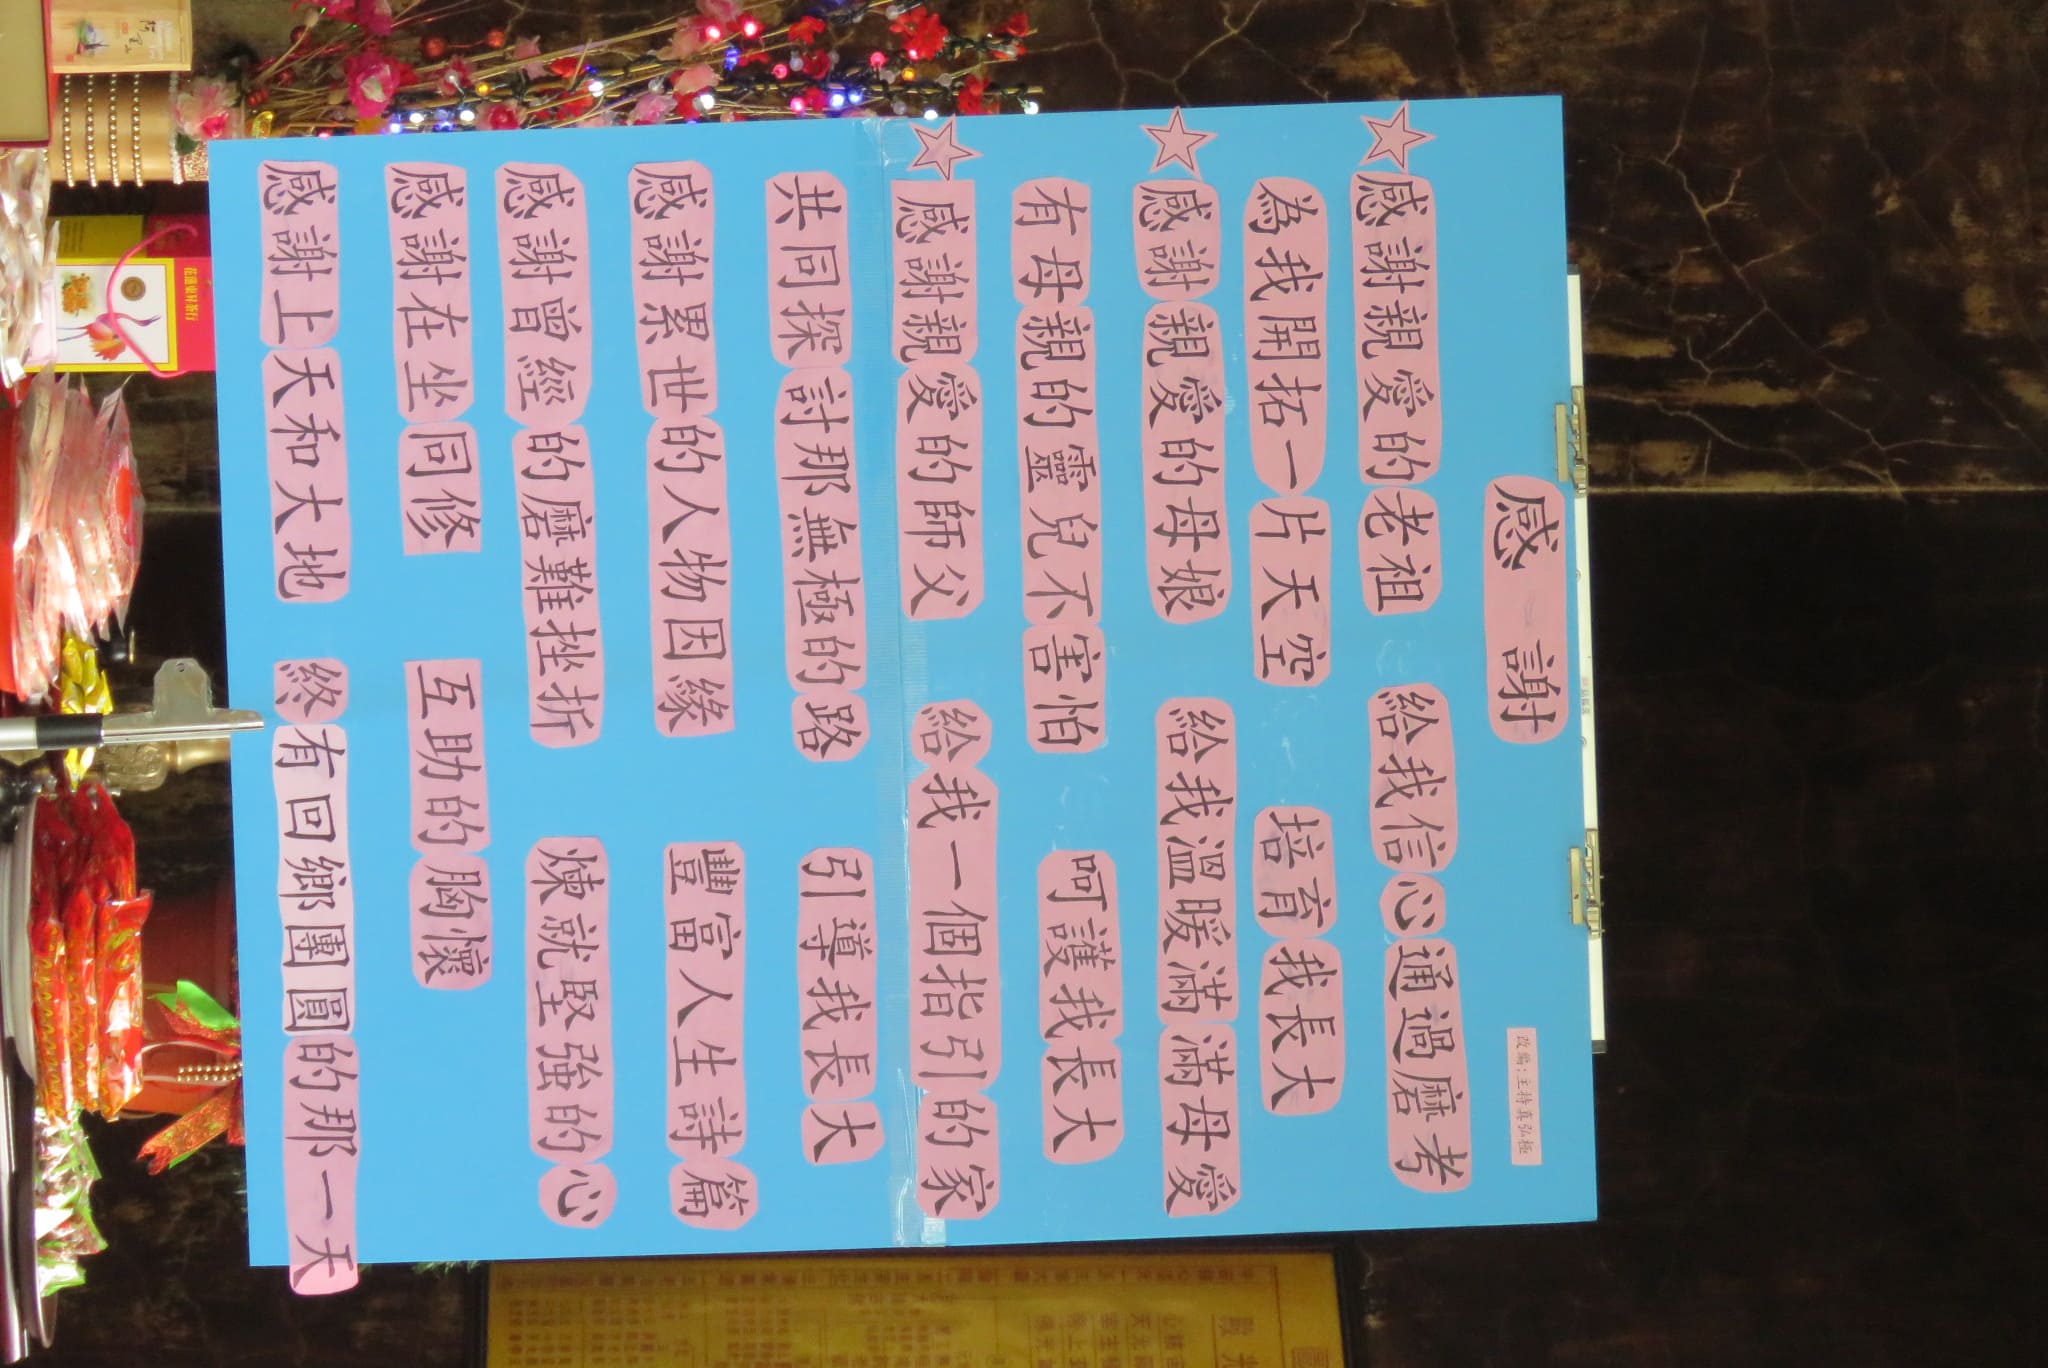 感謝
改編:主持真弘極
感謝親愛的老祖 給我信心通過磨考
為我開拓一片天空 培育我長大
感謝親愛的母娘 給我溫暖滿滿母愛
有母親的靈兒不害怕 呵護我長大
感謝親愛的師父 給我一個指引的家
共同探討那無極的路 引導我長大
感謝累世的人物因緣 豐富人生詩篇
感謝曾經的磨難挫折 煉就堅強的心
感謝在坐同修 互助的胸懷
感謝上天和大地 終有回鄉團圓的那一天